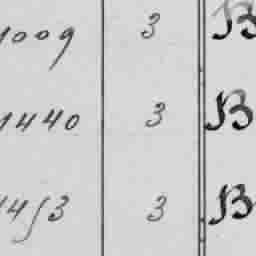 1009 3 B
1440 3 B
1453 3 B